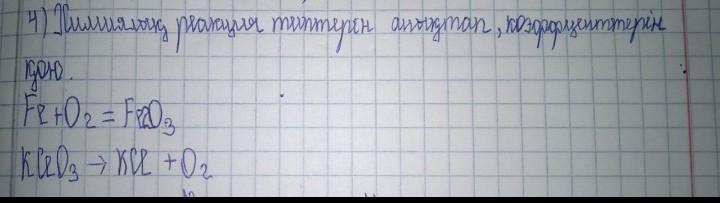 4) Химиялық реакция типтерен анықтап, коэффиценттерін
қою.
Fe+O2 = Fe2O3
KClO3 → KCl + O2